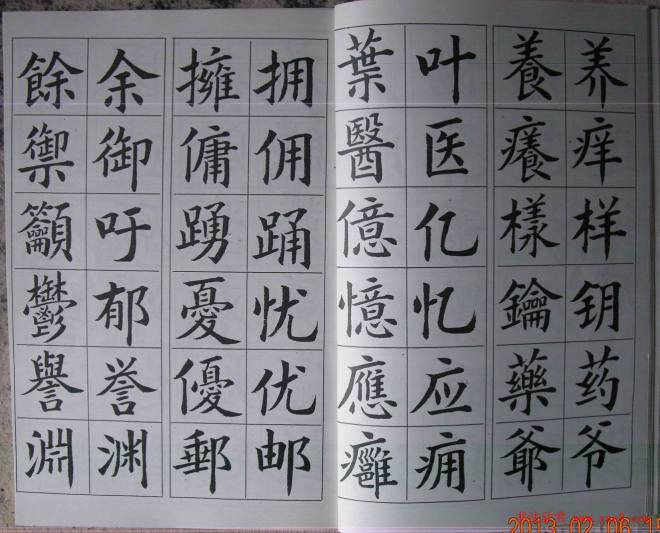 養养
癢痒
樣样
鑰钥
藥药
爺爷
葉叶
醫医
億亿
憶忆
應应
癰痈
擁拥
傭佣
踴踊
憂忧
優优
郵邮
餘余
禦御
籲吁
鬱郁
譽誉
淵渊